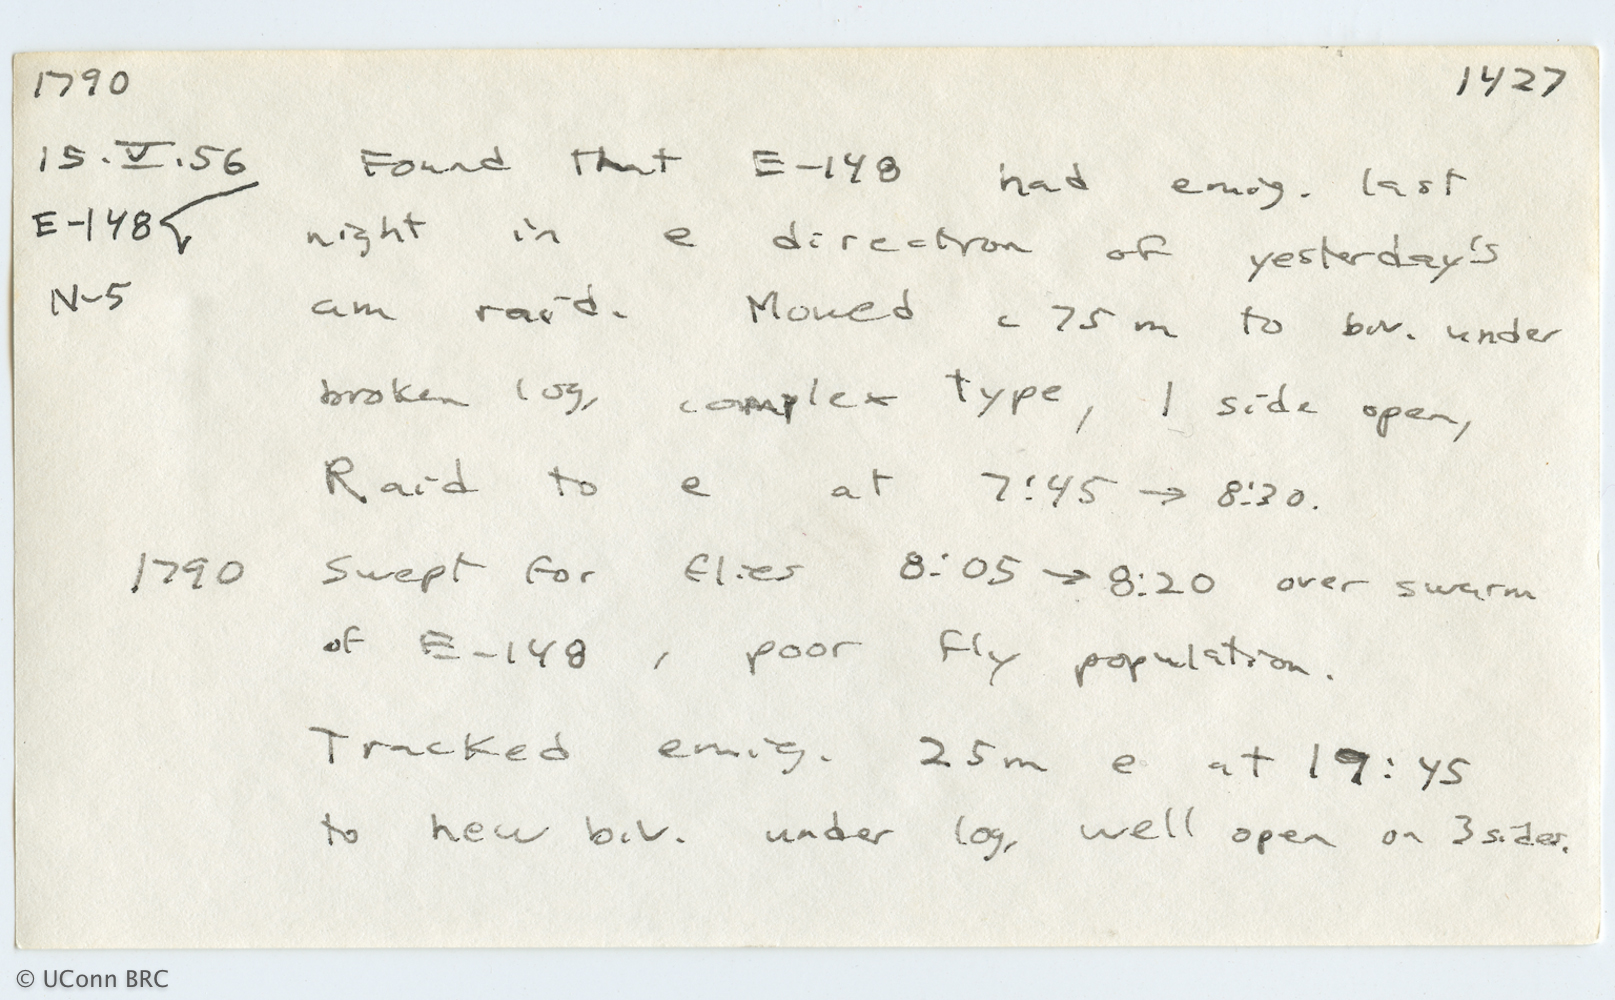 1790 1427
15.V.56 Found that E-148 had emig. last
E-148 night in e direction of yesterday's
N-5 am raid. Moved c 75 m to biv. under
broken log, complex type, 1 side open,
Raid to e at 7:45 → 8:30.
1790 Swept for flies 8:05 → 8:20 over swarm
of E-148, poor fly population.
Tracked emig. 25m e at 19:45
to new biv. under log, well open on 3 sides.
© UConn BRC